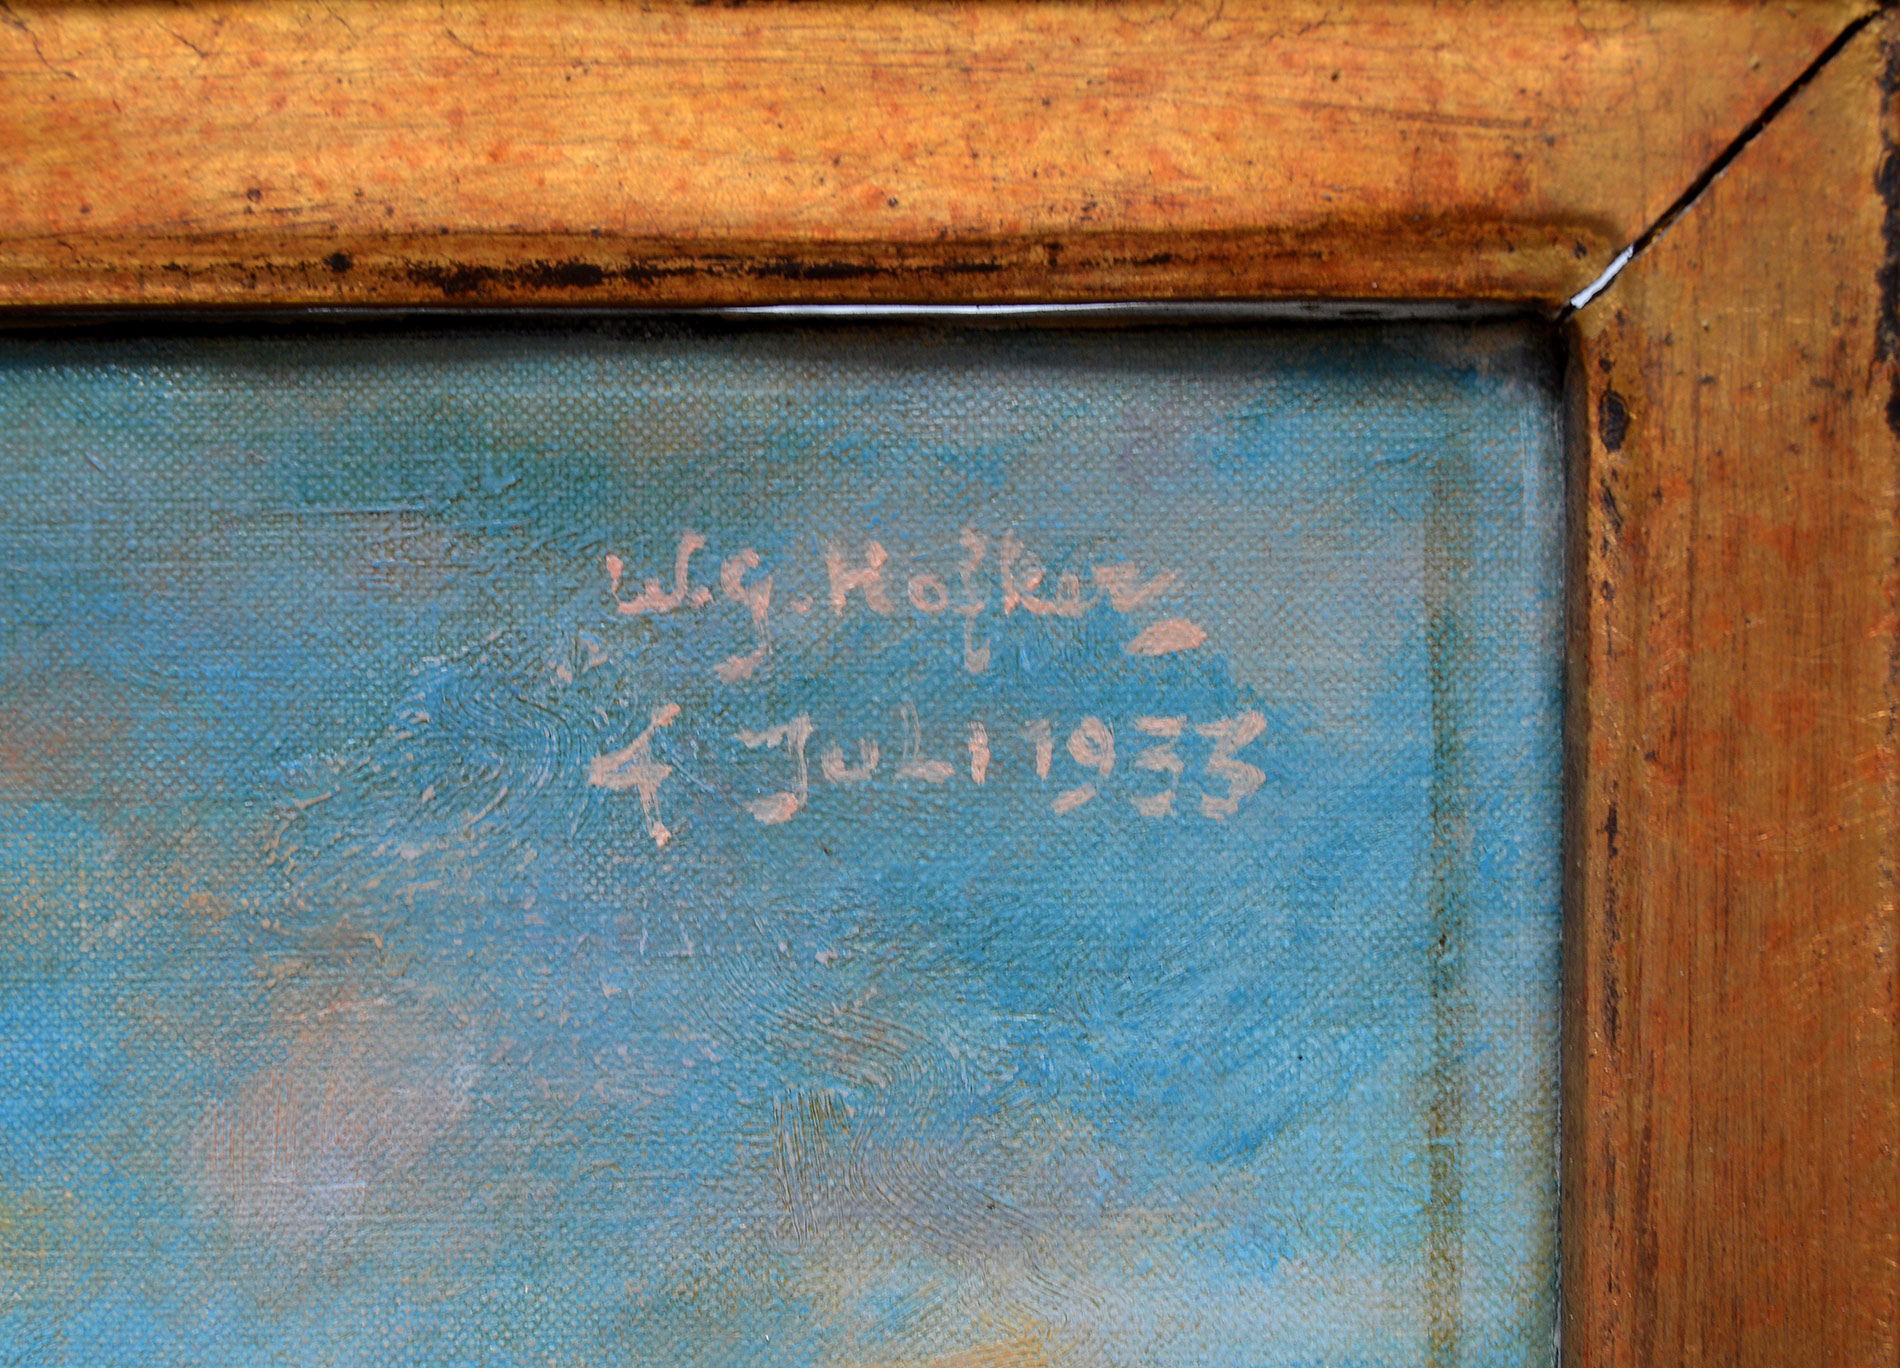 W.G. Hofker
4 Juli 1933